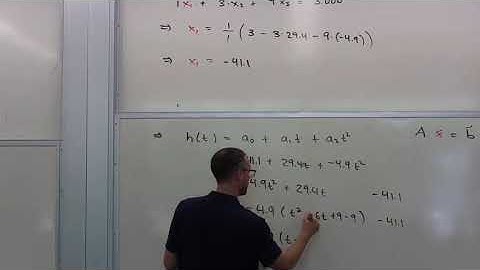 1x₁ + 3·x₂ + 9x₃ = 3.000
⇒ x₁ = 1/1 (3 − 3·29.4 − 9·(−4.9))
⇒ x₁ = −41.1
⇒ h(t) = a₀ + a₁t + a₂t²
A x = b
41.1 + 29.4t + −4.9t²
4.9t² + 29.4t − 41.1
−4.9 (t² − 6t + 9 − 9) − 41.1
(t −